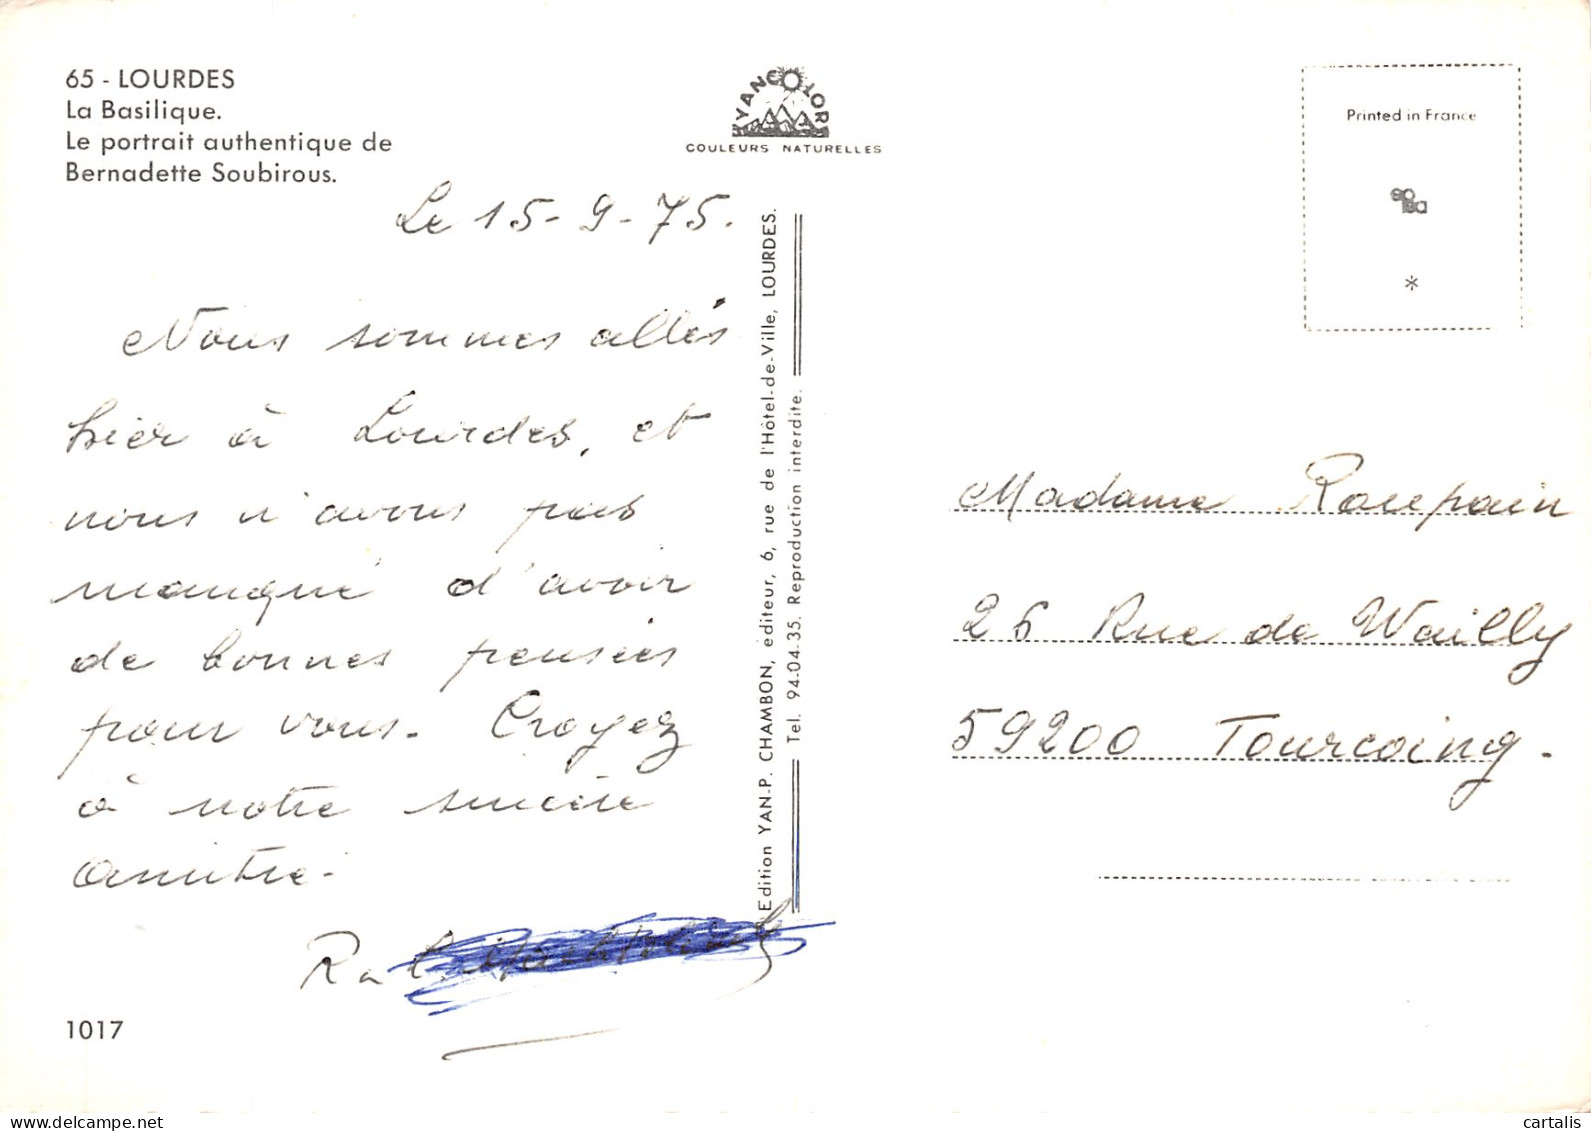 65 - LOURDES
La Basilique.
Le portrait authentique de
Bernadette Soubirous.
YANCOLOR
COULEURS NATURELLES
Printed in France
*
Le 15-9-75.
Nous sommes allés
hier à Lourdes, et
nous n'avons pas
manqué d'avoir
de bonnes pensées
pour vous. Croyez
à notre sincère
amitié.
1017
Edition YAN-P. CHAMBON, éditeur, 6, rue de l'Hôtel-de-Ville, LOURDES.
Tel. 94-04-35. Reproduction interdite.
Madame Roupain
26 Rue de Wailly
59200 Tourcoing.
delcampe.net
cartalis